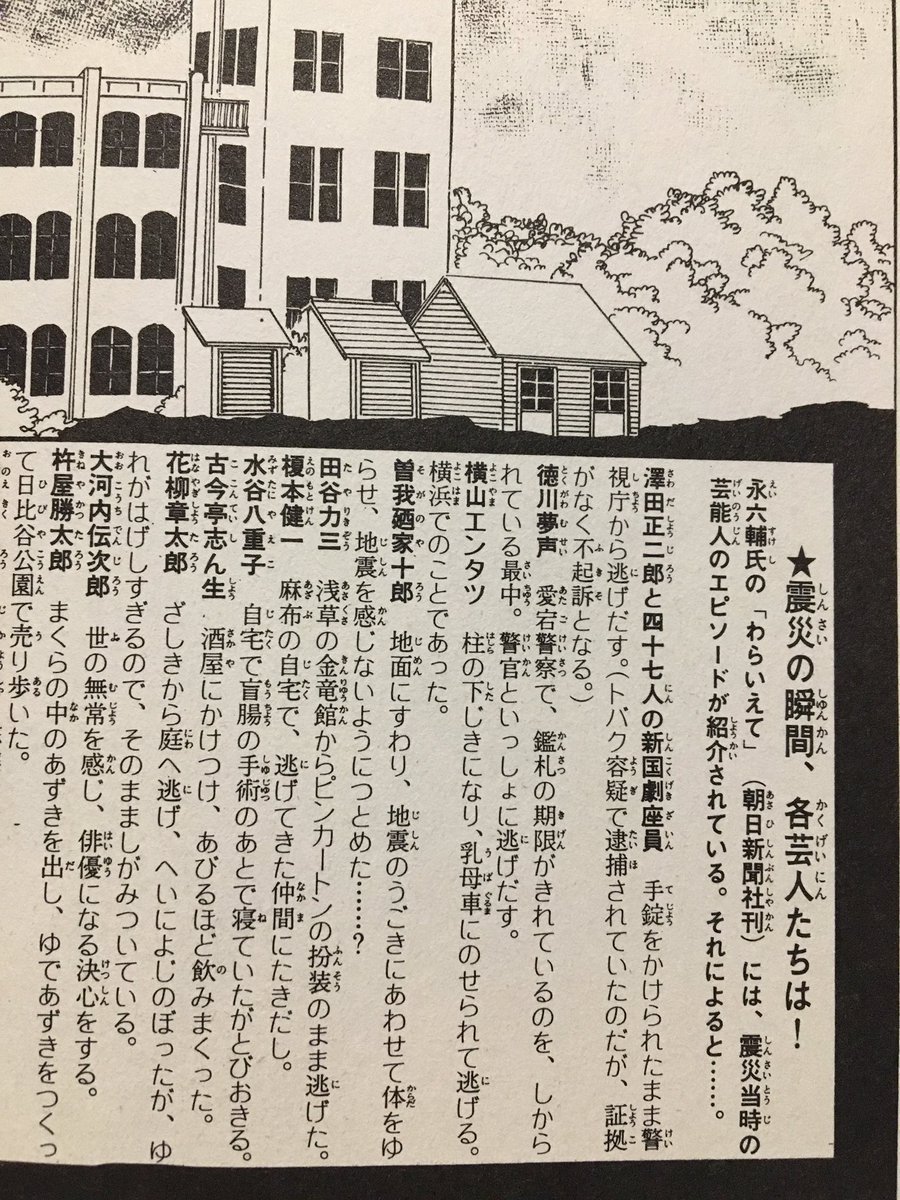 ★震災の瞬間、各芸人たちは！
永六輔氏の「わらいえて」（朝日新聞社刊）には、震災当時の
芸能人のエピソードが紹介されている。それによると……。
澤田正二郎と四十七人の新国劇座員　手錠をかけられたまま警
視庁から逃げだす。（トバク容疑で逮捕されていたのだが、証拠
がなく不起訴となる。）
徳川夢声　愛宕警察で、鑑札の期限がきれているのを、しから
れている最中。警官といっしょに逃げだす。
横山エンタツ　柱の下じきになり、乳母車にのせられて逃げる。
横浜でのことであった。
曽我廼家十郎　地面にすわり、地震のうごきにあわせて体をゆ
らせ、地震を感じないようにつとめた……？
田谷力三　浅草の金竜館からピンカートンの扮装のまま逃げた。
榎本健一　麻布の自宅で、逃げてきた仲間にたきだし。
水谷八重子　自宅で盲腸の手術のあとで寝ていたがとびおきる。
古今亭志ん生　酒屋にかけつけ、あびるほど飲みまくった。
花柳章太郎　ざしきから庭へ逃げ、へいによじのぼったが、ゆ
れがはげしすぎるので、そのまましがみついている。
大河内伝次郎　世の無常を感じ、俳優になる決心をする。
杵屋勝太郎　まくらの中のあずきを出し、ゆであずきをつくっ
て日比谷公園で売り歩いた。